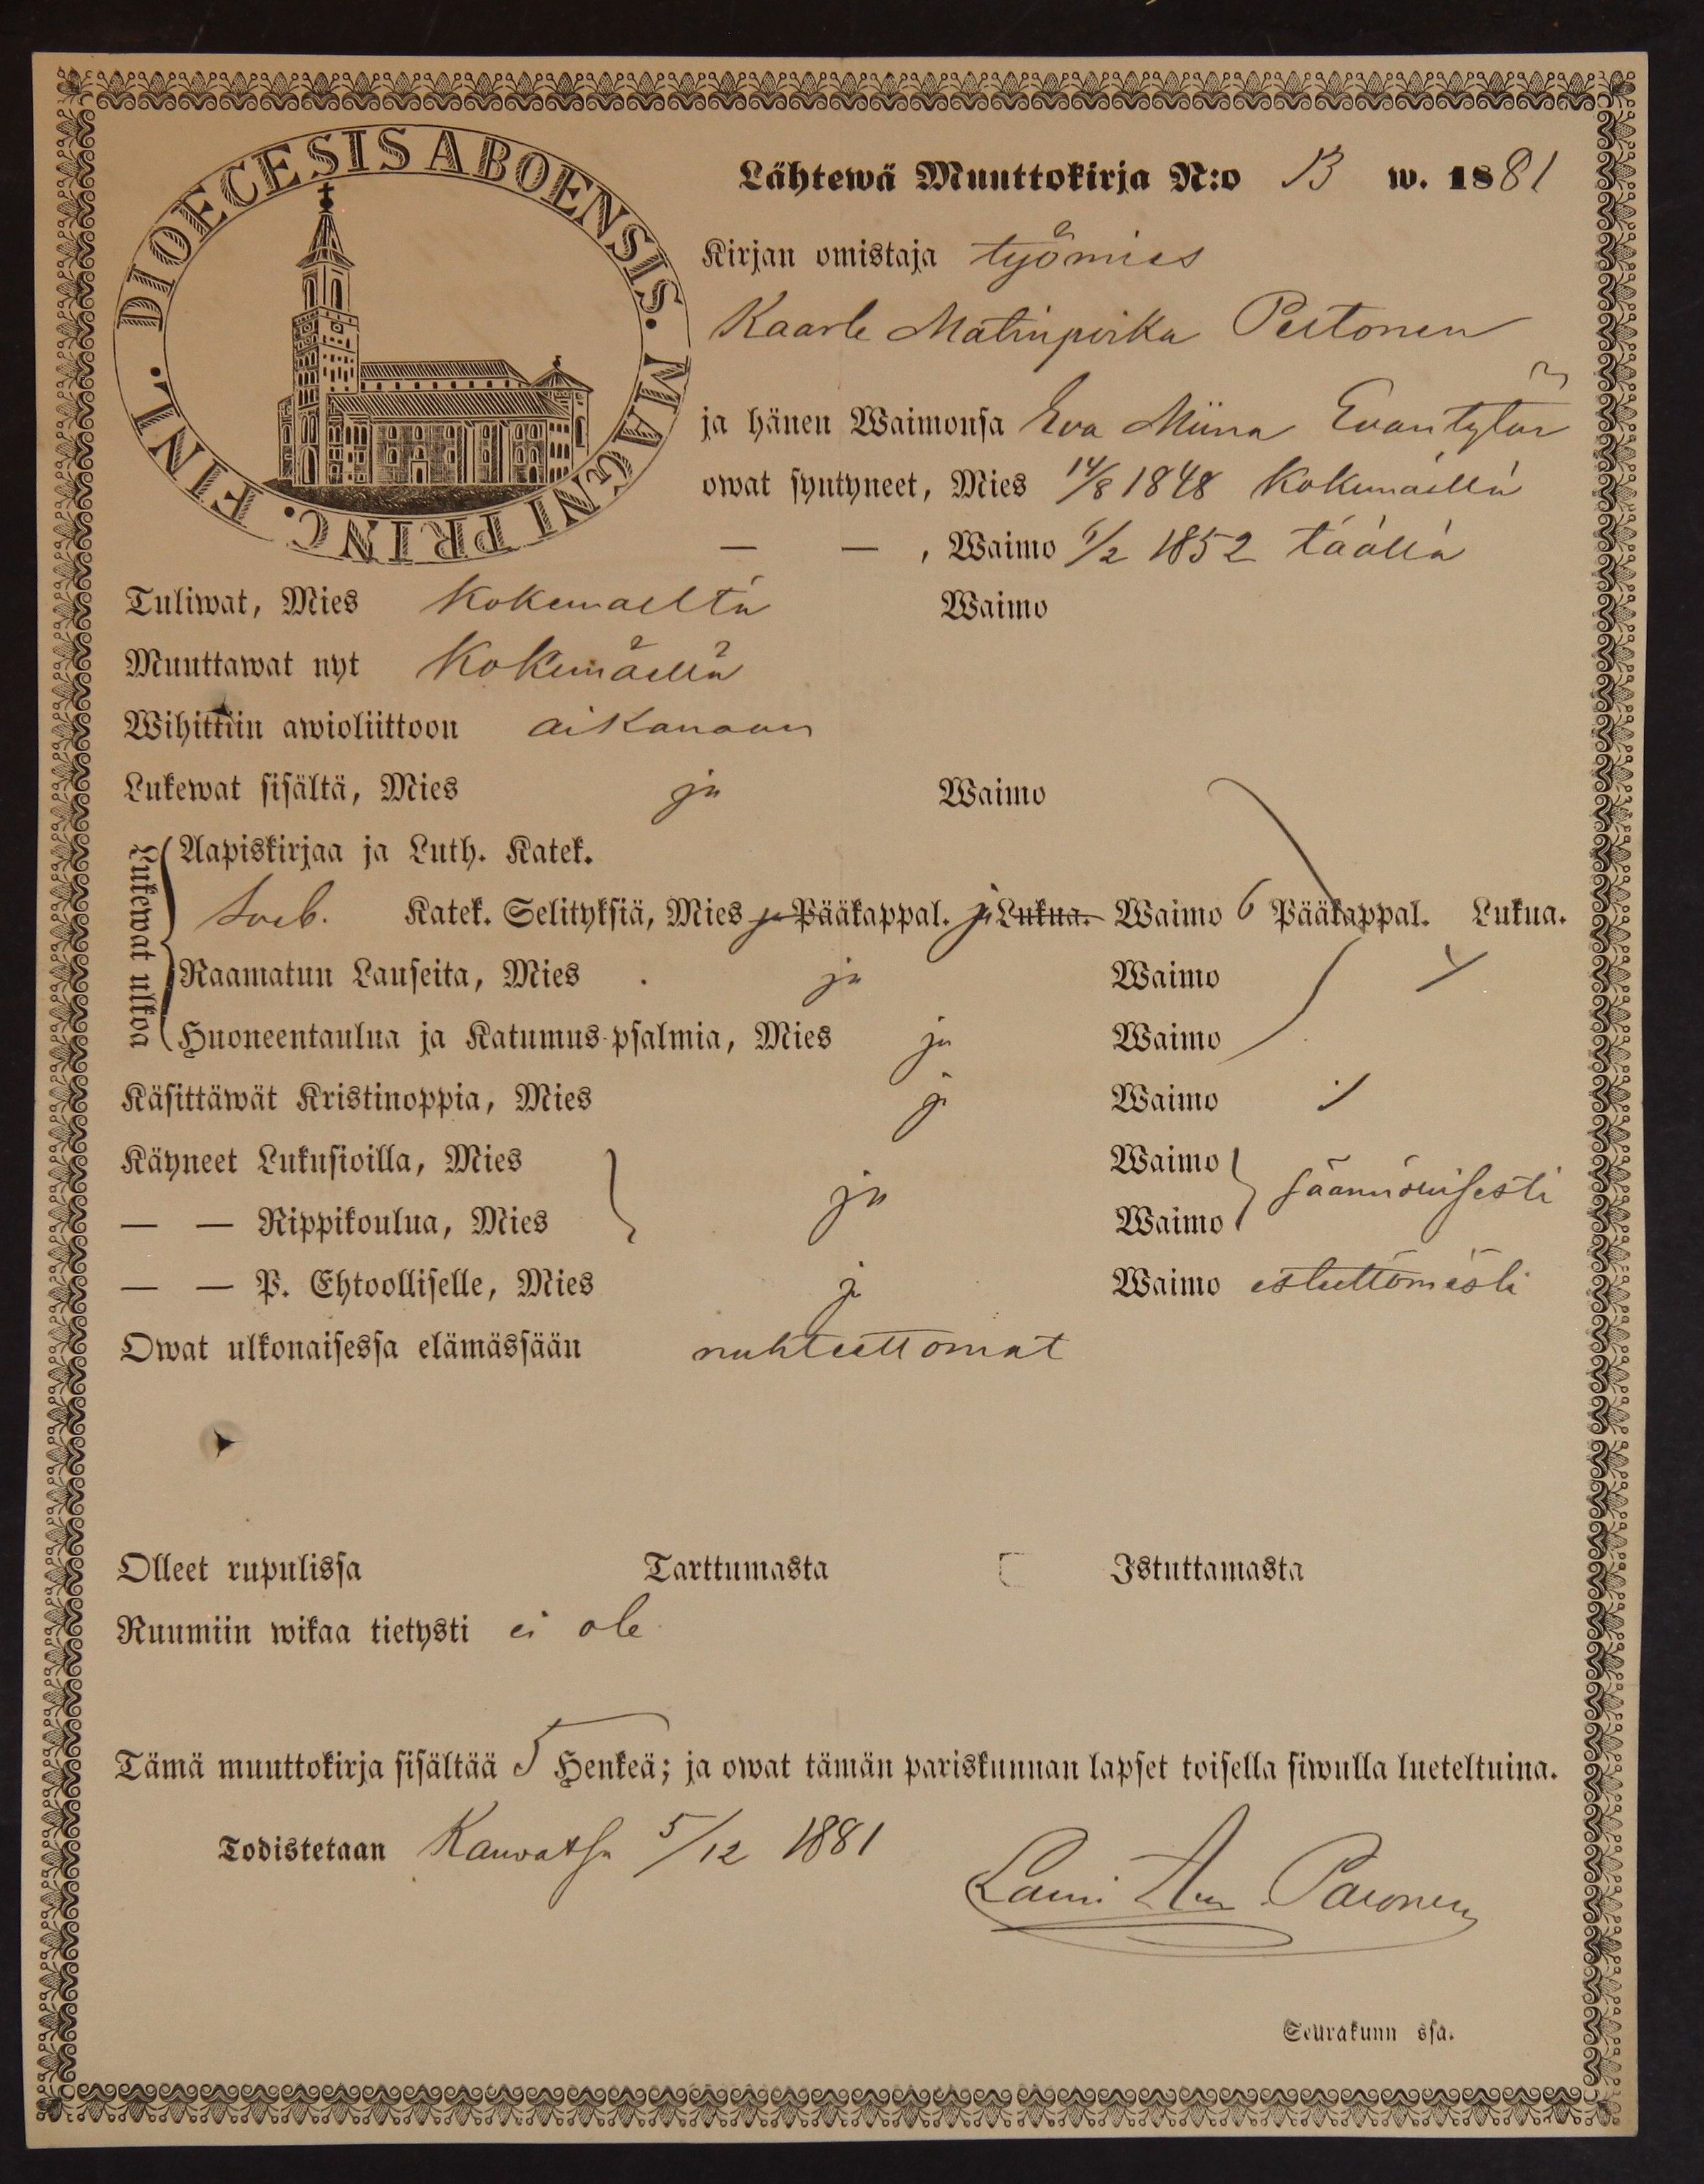 DIOECESIS ABOENSIS. MAGNI PRINC. FINL.
Lähtewä Muuttokirja N:o 13 w. 1881
Kirjan omistaja työmies
Kaarle Matinpoika Peltonen
ja hänen Waimonsa Eva Miina Evantytär
owat syntyneet, Mies 14/8 1848 Kokemäellä
— — , Waimo 6/2 1852 täällä
Tuliwat, Mies Kokemäeltä Waimo
Muuttawat nyt Kokemäellä
Wihittiin awioliittoon aikanaan
Lukewat sisältä, Mies ja Waimo
Lukewat ulkoa
Aapiskirjaa ja Luth. Katek.
Sveb. Katek. Selityksiä, Mies ja Pääkappal. ja Lukua. Waimo 6 Pääkappal. Lukua.
Raamatun Lauseita, Mies ja Waimo
Huoneentaulua ja Katumus-psalmia, Mies ja Waimo
Käsittäwät Kristinoppia, Mies ja Waimo
Käyneet Lukusioilla, Mies ja Waimo säännöllisesti
— — Rippikoulua, Mies Waimo
— — P. Ehtoolliselle, Mies ja Waimo esteettömästi
Owat ulkonaisessa elämässään nuhteettomat
Olleet rupulissa Tarttumasta Istuttamasta
Ruumiin wikaa tietysti ei ole
Tämä muuttokirja sisältää 5 Henkeä; ja owat tämän pariskunnan lapset toisella siwulla lueteltuina.
Todistetaan Kauvatsa 5/12 1881
Lauri Paronen
Seurakunn ssa.